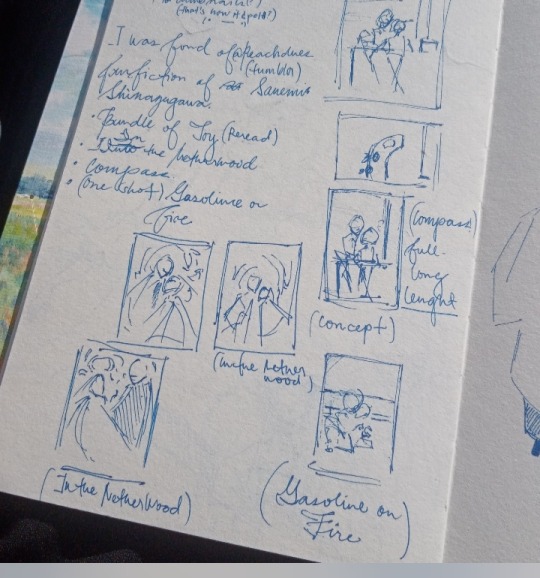 (that's how it spelt?)
I was fond of @teachdues
(tumblr)
fanfiction of Sanemi
Shinazugawa.
• Bundle of Joy (Reread)
• In the Netherwood
• Compass
• (One shot) Gasoline on
Fire
(Compass)
full-
long
lenght
(concept)
(In the Nether
wood)
(In the Netherwood)
(Gasoline on
Fire)